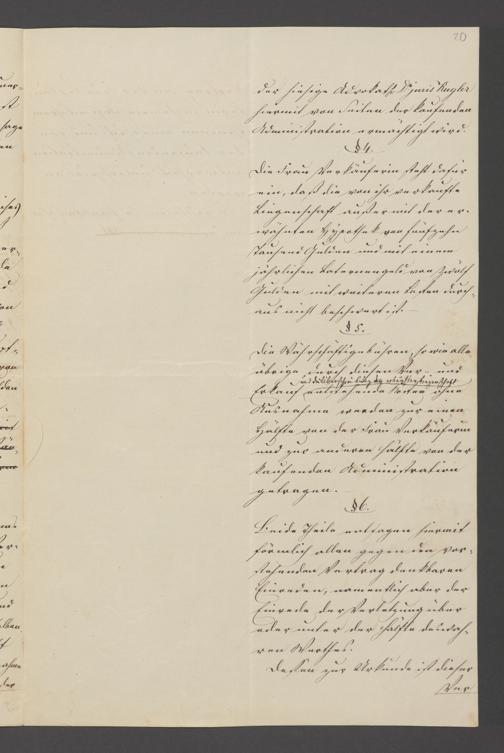 20
der hiesige Advokat Dr juris Kugler
hiermit von Seiten der kaufenden
Administration ermächtigt wird.
§ 4.
Die Frau Verkäuferin steht dafür
ein, daß die von ihr verkaufte
Liegenschaft außer mit der er-
wähnten Hypothek von fünfzehn
Tausend Gulden und mit einem
jährlichen Laternengeld von zwölf
Gulden mit weiteren Lasten durch-
aus nicht beschwert ist.
§ 5.
Die Währschaftsgebühren, sowie alle
übrige durch diesen Ver- und
Erkauf entstehende Kosten ohne
Ausnahme werden zur einen
Hälfte von der Frau Verkäuferin
und zur anderen Hälfte von der
kaufenden Administration
getragen.
§ 6.
Beide Theile entsagen hiermit
förmlich allen gegen den vor-
stehenden Vertrag denkbaren
Einreden, namentlich aber der
Einrede der Verletzung über
oder unter der Hälfte des wah-
ren Werthes.
Dessen zur Urkunde ist dieser
Ver